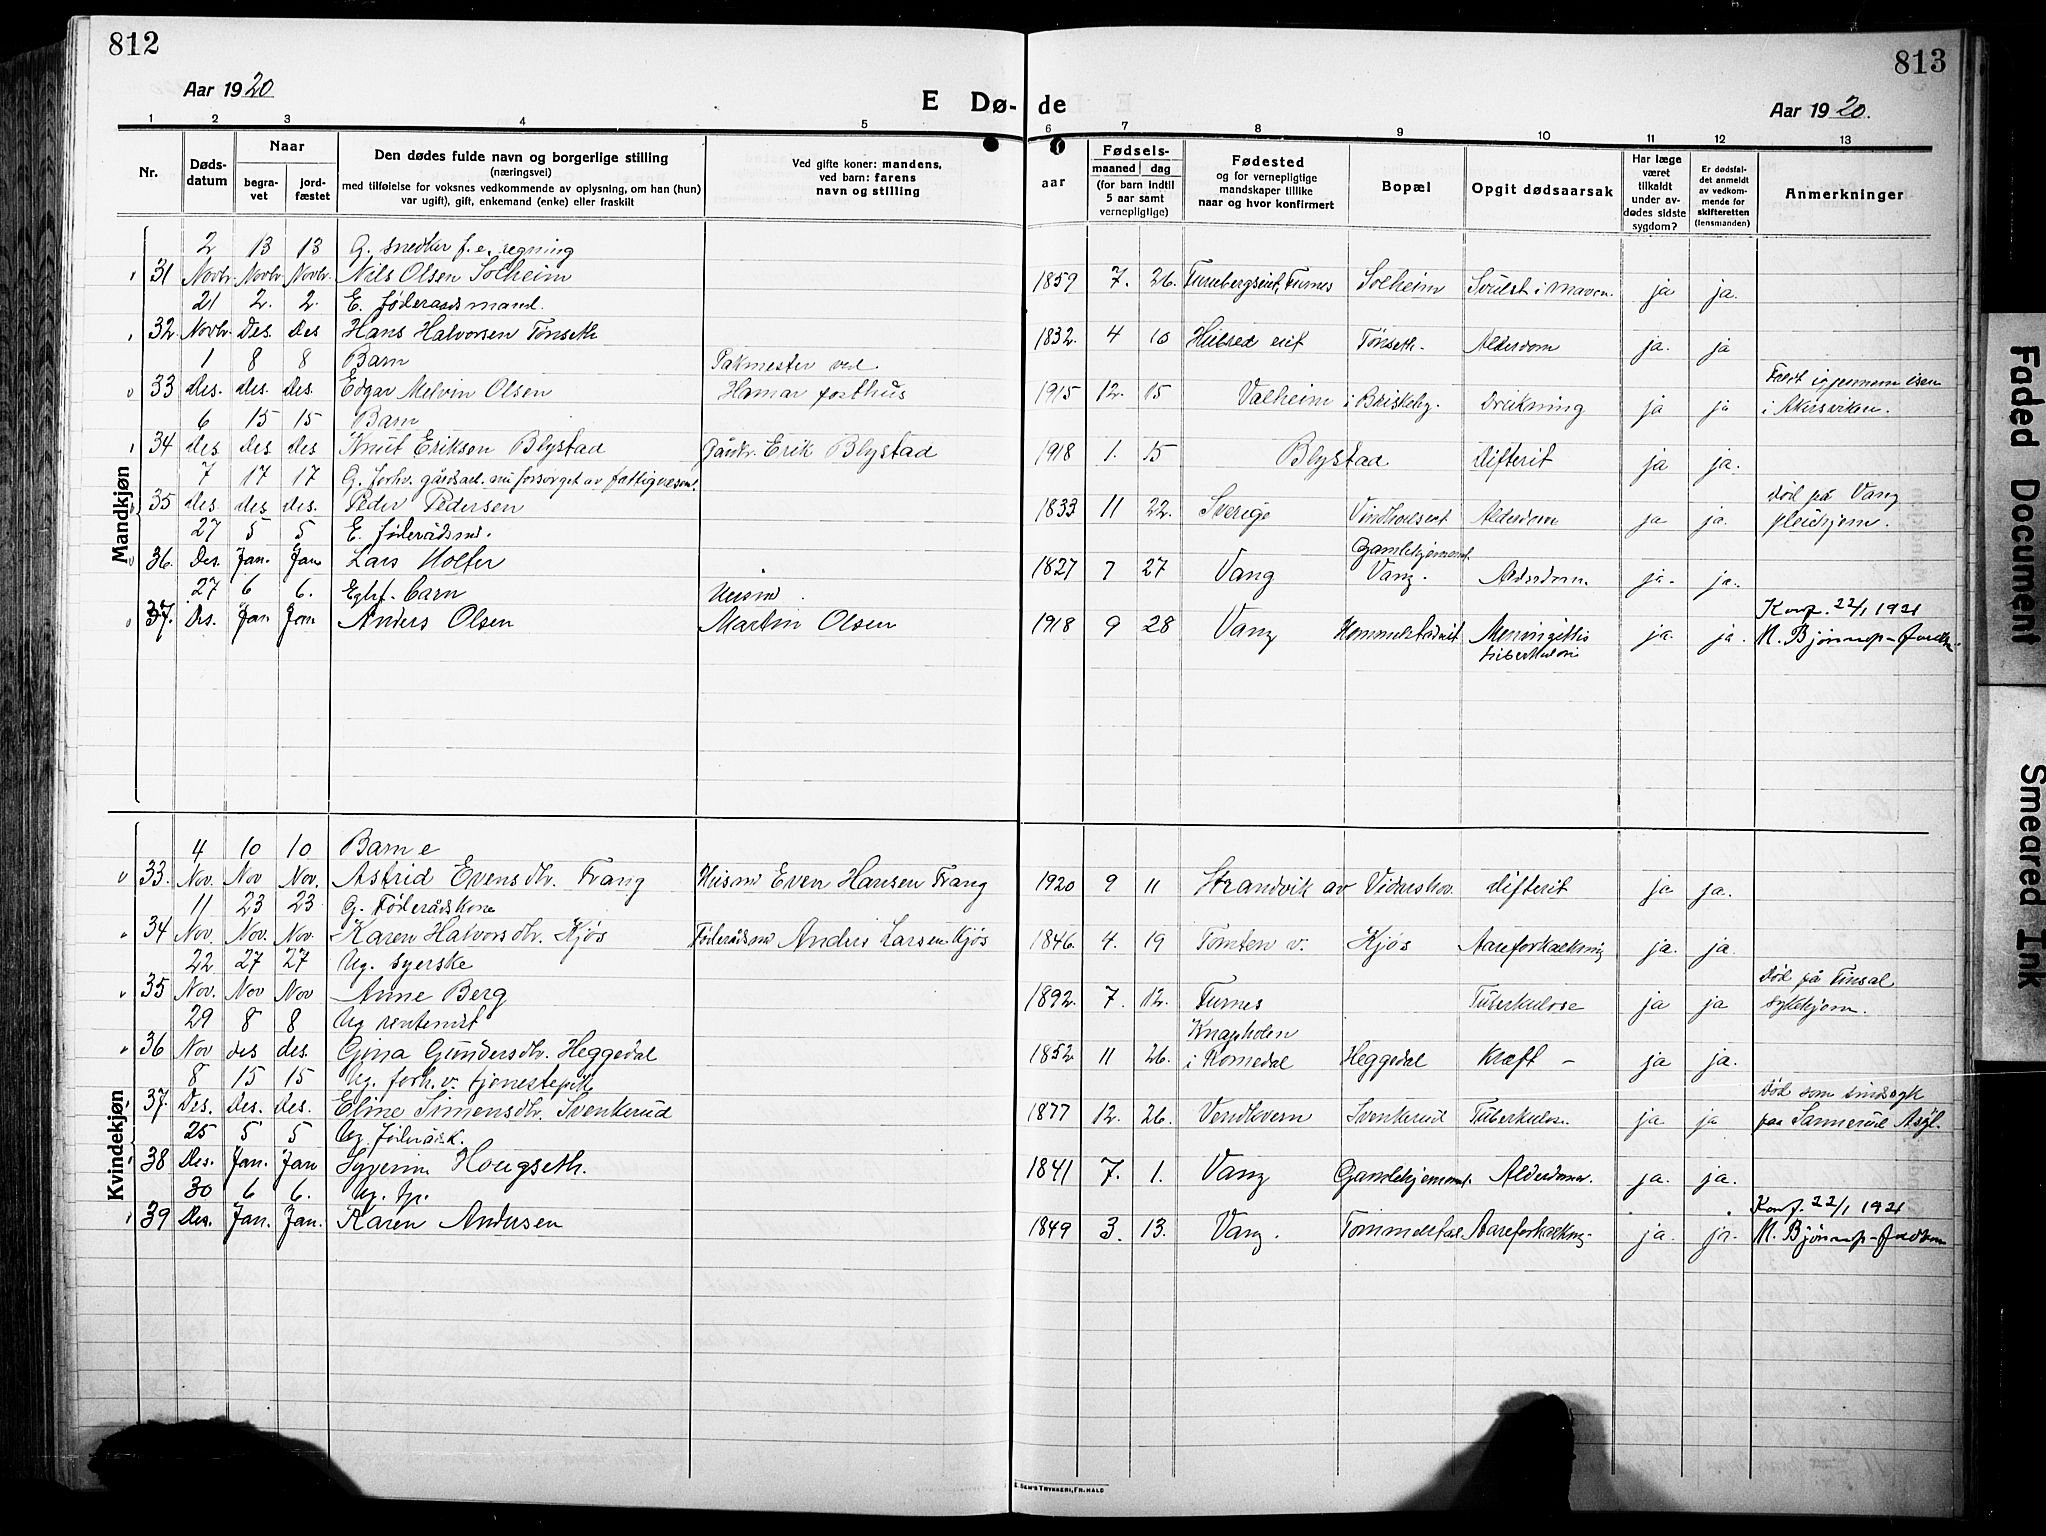 812
813
Aar 1920
E Dø-
de
Aar 1920.
1 2 3 4 5 6 7 8 9 10 11 12 13
Nr.
Døds-
datum
Naar
begra-
vet
jord-
fæstet
Den dødes fulde navn og borgerlige stilling
(næringsvei)
med tilføielse for voksnes vedkommende av oplysning, om han (hun)
var ugift), gift, enkemand (enke) eller fraskilt
Ved gifte koner: mandens,
ved barn: farens
navn og stilling
aar
Fødsels-
maaned dag
(for barn indtil
5 aar samt
vernepligtige)
Fødested
og for vernepligtige
mandskaper tillike
naar og hvor konfirmert
Bopæl
Opgit dødsaarsak
Har læge
været
tilkaldt
under av-
dødes sidste
sygdom?
Er dødsfal-
det anmeldt
av vedkom-
mende for
skifteretten
(lensmanden)
Anmerkninger
Mandkjøn
2 13 13 G. snedker f. e. regning
31 Novbr. Novbr. Novbr. Nils Olsen Solheim 1859 7. 26. Furubergseiet, Furnes Solheim Svulst i maven ja ja.
21 2. 2. E. føderaadsmand.
32 Novbr. Des. Des Hans Halvorsen Tønseth 1832. 4 10 Hubred eiet Tønseth. Alderdom ja. ja
1 8 8 Barn Pakmester ved
33 des. des. des. Edgar Melvin Olsen Hamar posthus 1915 12. 15 Valheim i Briskeby. Drukning ja ja Faldt igjennem isen
i Akersviken.
6 15 15 Barn
34 des. des des Knut Eriksen Blystad Gårdbr. Erik Blystad 1918 1. 15 Blystad difterit ja ja.
7 17 17 G. forhv. gårdsarb. nu forsørget av fattigvesenet
35 des. des des. Peder Pedersen 1833 11 22. Sverige Alderdom ja ja. død på Vang
pleiehjem.
27 5 5 E. føderådsmd.
36. Des. Jan. Jan Lars Holter 1827 7 27 Vang Gamlehjemmet
Vang. Alderdom. ja. ja.
27 6 6. Egtef. barn Husmd.
37. Des. Jan Jan Anders Olsen Martin Olsen 1918 9 28 Vang Hommelstadeiet Meningitis
tuberkulosi ja. ja. Konf. 22/1 1921
N. Bjørnup-
Kvindekjøn
4 10 10 Barn e
33. Nov. Nov Nov. Astrid Evensdtr. Frang Husmd Even Hansen Frang 1920 9 11 Strandvik av Vidarshov. difterit ja ja.
11 23 23 G. Føderådskone
34 Nov. Nov. Nov. Karen Halvorsdtr. Kjøs Føderådsmd Anders Larsen Kjøs 1846. 4. 19 Tomten v. Kjøs Aareforkalkning ja. ja.
22 27 27 Ug. syerske
35 Nov. Nov Nov Anne Berg 1892. 7. 12. Furnes Tuberkulose ja ja Død på Finsal
sykehjem.
29 8 8 Ug rentenist
36 Nov des des. Gina Gundersdtr. Heggedal 1852 11 26. Knapholen
i Romedal Heggedal Kræft – ja ja.
8 15 15 Ug. forh. v. tjenestepike
37. Des. Des. des. Eline Simensdtr. Svenkerud 1877 12. 26. Vendkvern Svenkerud Tuberkulose ja ja Død som sindssyk
paa Sannerud Asyl.
25 5 5 Ug. føderådsk.
38 Des. Jan. Jan Syverine Hougseth. 1841 7. 1. Vang Gamlehjemmet. Alderdom. ja. ja.
30 6 6. Ug. tp.
39 Des. Jan. Jan. Karen Andersen 1849 3. 13. Vang. Tommelstad. Aareforkalkng. ja. ja. Konf. 22/1 1921
N. Bjørnup-
Faded Document
Smeared Ink